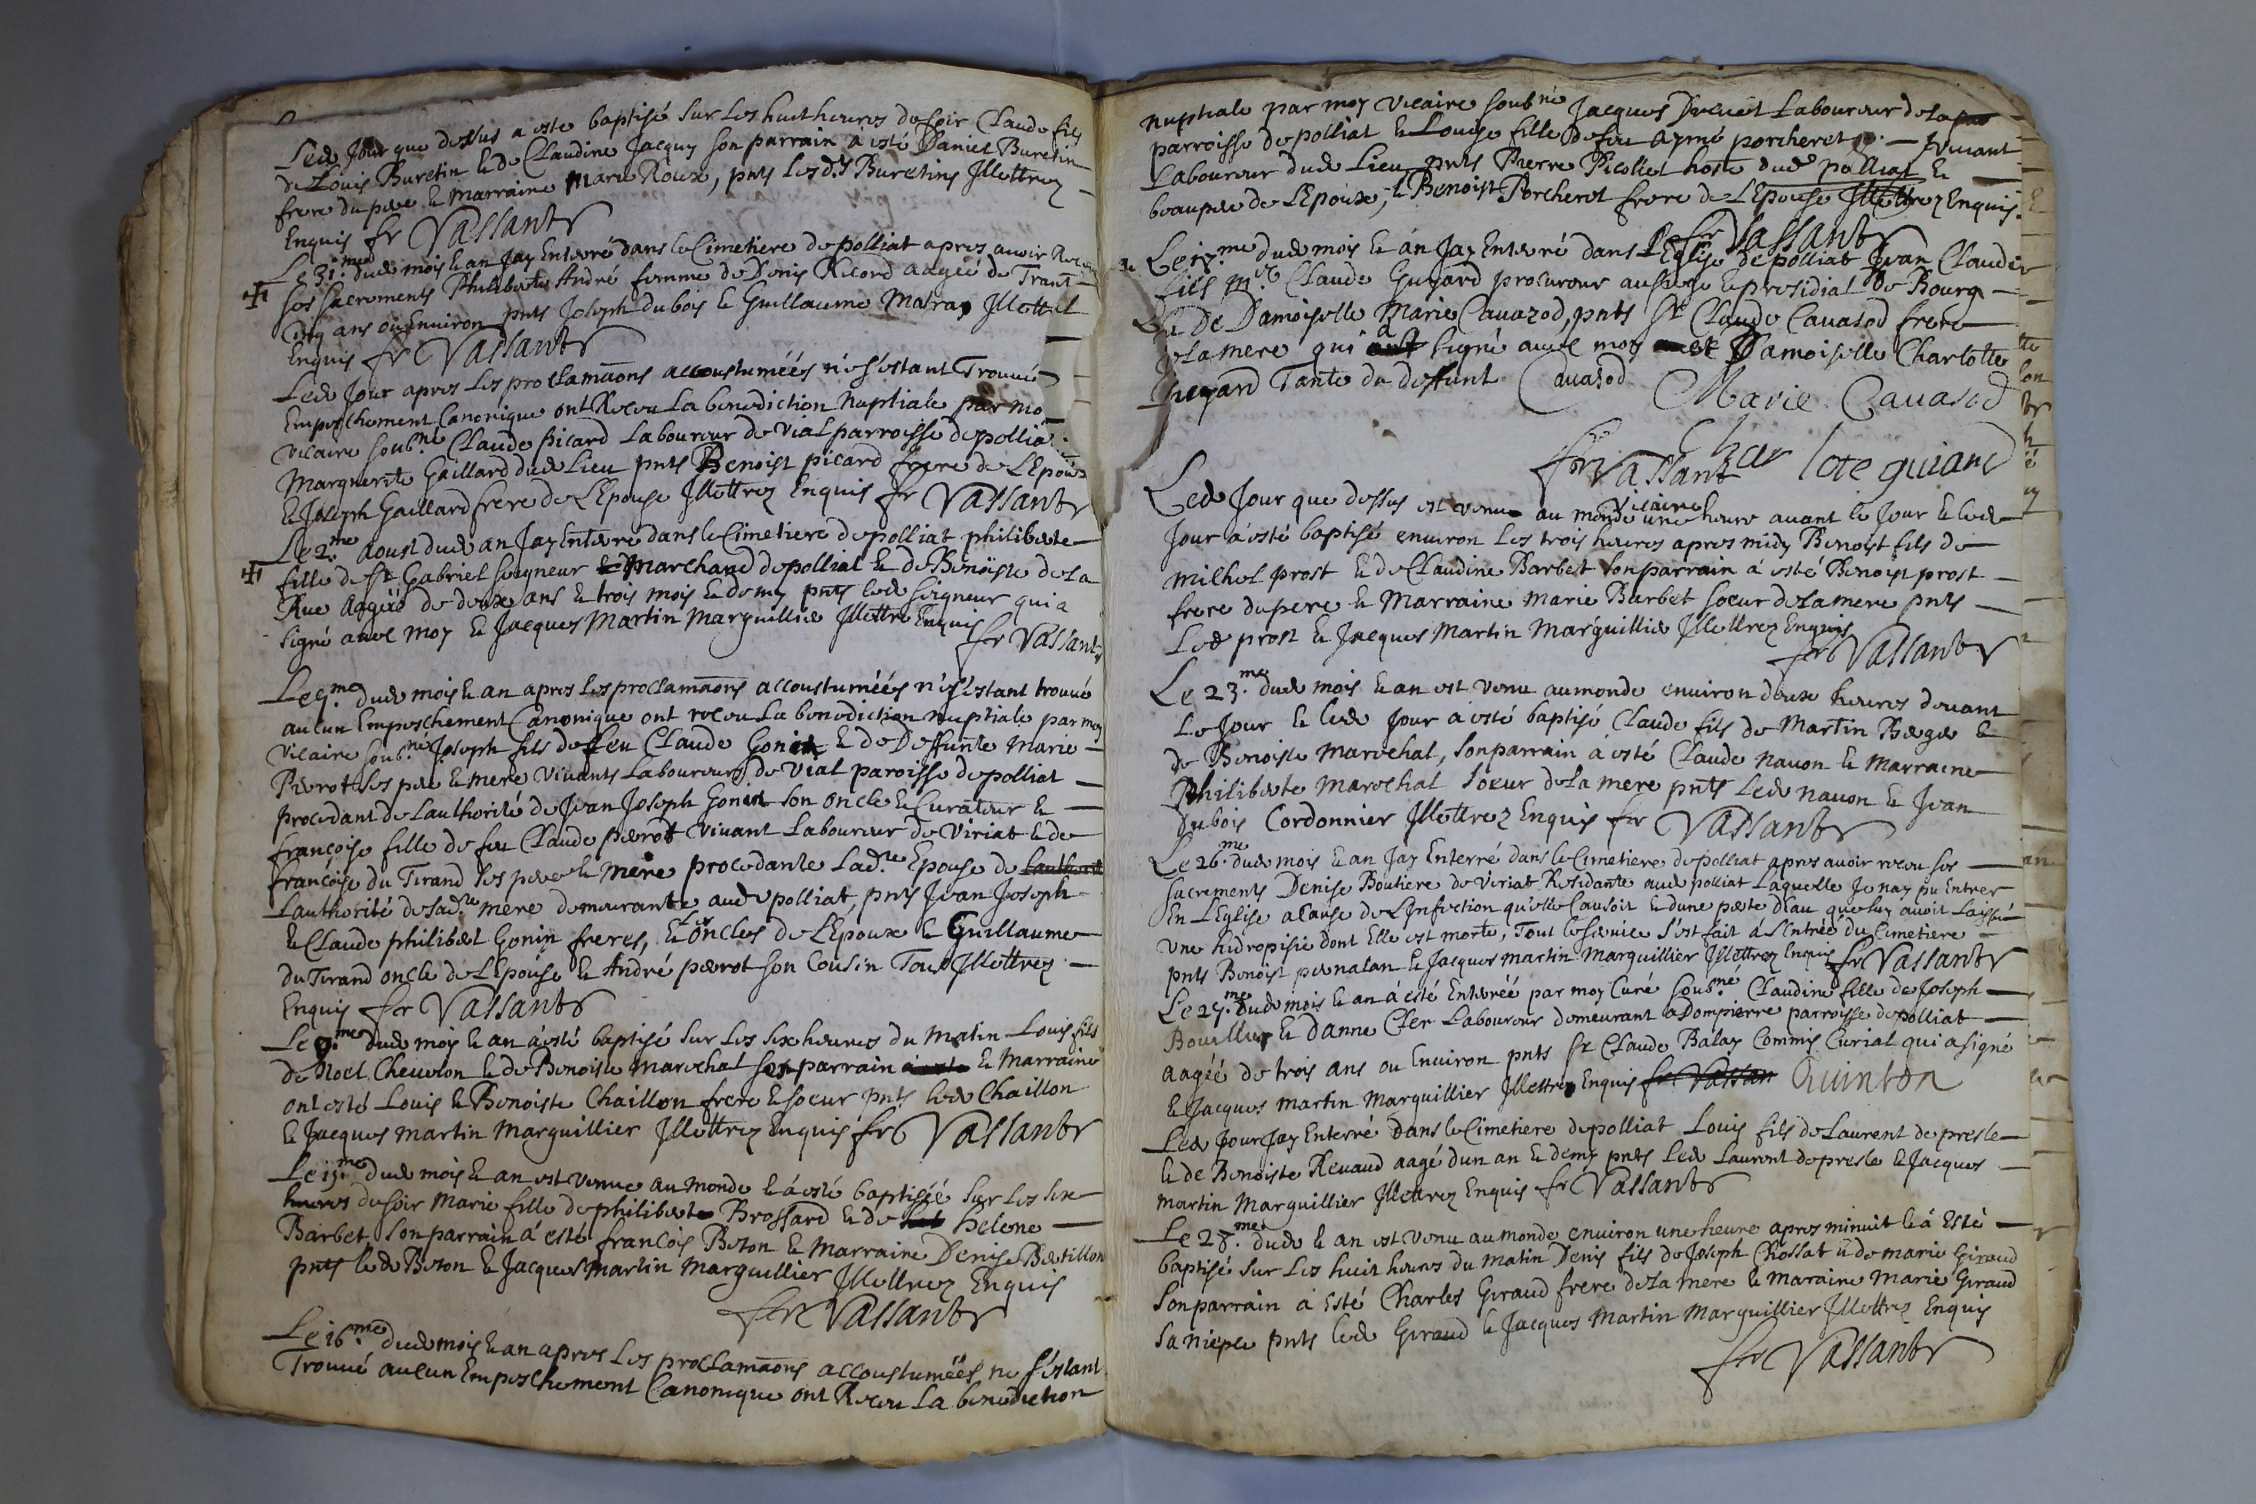 Led Jour que dessus a este baptisé sur les huit heures du soir Claude fils
de Louis Buretin & de Claudine Jacquy son parrain à esté Daniel Buretin
frere du pere & marraine Marie Roux, pnts lesd.ts Buretins Illettrez
Enquis fr Vassant
Le 31.me dud mois & an Jay Enterré dans le Cimetiere de polliat apres avoir Receu
ses Sacrements Philiberte André femme de Denis Ricord aagéé de Trant
Cinq ans ou Environ pnts Joseph dubois & Guillaume Maray Illett
Enquis fr Vassant
Led Jour apres les proclamaons accoustuméés ne s'estant Trouvé
Empeschement Canonique ont Receu La benediction Nuptiale par mo
vicaire soub.né Claude picard Laboureur de Vial parroisse de pollia
Marguerite Gaillard dud Lieu pnts Benoist picard frere de L'Epoux
& Joseph Gaillard frere de L'Epouse Illettrez Enquis fr Vassant
Le 2.me Aoust dud an Jay Enterré dans le Cimetiere de polliat philiberte
fille de Sr Gabriel Seigneur Marchand de polliat & de Benoiste de La
Rue Aagéé de deux ans & trois mois & demy pnts led seigneur qui a
signé avec moy & Jacques Martin Marguillier Illettré Enquis
fr Vassant
Le 9.me dud mois & an apres les proclamaons accoustuméés n'es'estant trouvé
aucun Empeschement Canonique ont receu La benediction nuptiale par moy
vicaire soub.né Joseph fils de ffeu Claude Gonin & de Deffunte Marie
Pierrot ses pere & mere Vivants Laboureurs de Vial paroisse de polliat
procedant de Lauthorité de Jean Joseph Gonin son oncle & Curateur &
françoise fille de feu Claude pierrot vivant Laboureur de Viriat & de
françoise du Tirand ses pere & mere procedante Lad.te Epouse de Lauthorit
Lauthorité de sad.te mere demeurante aud polliat, pnts Jean Joseph
& Claude philibert Gonin freres, & oncles de L'Epoux & Guillaume
du Tirand oncle de L'Epouse & André pierrot son Cousin Tous Illettrez
Enquis fr Vassant
Le 9.me dud mois & an à esté baptisé sur les six heures du matin Louis fils
de Noel Chevelon & de Benoiste Marechal son parrain & Marraine
ont esté Louis & Benoiste Chaillon frere & soeur pnts led Chaillon
& Jacques Martin Marguillier Illettrez Enquis fr Vassant
Le 15.me dud mois & an est venue au monde & à esté baptiséé sur les six
heures du soir Marie fille de philiberte Brossard & de Helene
Barbet son parrain à esté françois Boton & Marraine Denise Bertillon
pnts led Boton & Jacques Martin Marguillier Illettrez Enquis
fr Vassant
Le 16.me dud mois & an apres Les proclamaons accoustuméés, ne s'éstant
Trouvé aucun Empeschement Canonique ont Receu La benediction
nuptiale par moy vicaire soub.né Jacques Laboureur de La
parroisse de polliat & Louise fille de feu Aymé porcheret vivant
Laboureur dud Lieu pnts Pierre Picollet hoste dud polliat &
beaupere de L'Epoux, & Benoist Porcheret frere de L'Epouse Illettrez Enquis
fr Vassant
Le 17.me dud mois & an Jay Enterré dans L'Eglise de polliat Jean Claude
fils Mre Claude Guyard procureur au siege & presidial de Bourg
& De Damoiselle Marie Cavazod, pnts Sr Claude Cavasod frere
de La mere qui a signé avec moy Damoiselle Charlotte
Guyard Tante du deffunt Cavasod
Marie Cavasod
Charlote guiard
fr Vassant
vicaire
Led Jour que dessus est venu au monde une heure avant le Jour & led
Jour à esté baptisé environ les trois heures apres midy Benoist fils de
Michel prost & de Claudine Barbet son parrain à esté Benoist prost
frere du pere & Marraine Marie Barbet soeur de La mere pnts
Led prost & Jacques Martin Marguillier Illettrez Enquis
fr Vassant
Le 23.me dud mois & an est venu au monde environ deux heures devant
Le Jour & led Jour à esté baptisé Claude fils de Martin Berger &
de Benoiste Marechal, son parrain à esté Claude Navon & Marraine
Philiberte Marechal soeur de La mere pnts Led navon & Jean
Dubois Cordonnier Illettrez Enquis fr Vassant
Le 26.me dud mois & an Jay Enterré dans le Cimetiere de polliat apres avoir receu ses
sacrements Denise Boutiere de Viriat Residante aud polliat Laquelle Je nay pu Entrer
En L'Eglise a Cause de L'Infection qu'elle Causoit & dune perte d'Eau que luy avoit Laissé
une hidropisie dont Elle est morte, Tout le service s'est fait à L'Entréé du Cimetiere
pnts Benoist pernalan & Jacques martin Marguillier Illettrez Enquis fr Vassant
Le 27.me dud mois & an à esté Enterréé par moy Curé soub.né Claudine fille de Joseph
Bouillier & danne Cler Laboureur demeurant a Dompierre parroisse de polliat
aagéé de trois ans ou Environ pnts Sr Claude Balay Commis Curial qui a signé
& Jacques martin Marguillier Illettrez Enquis fr Vassan Quinton
Led Jour Jay Enterré dans le Cimetiere de polliat Louis fils de Laurent de presle
& de Benoiste Revaud aagé dun an & demy pnts Led Laurent de presle & Jacques
Martin Marguillier Illettrez Enquis fr Vassant
Le 28.me dud & an est venu au monde environ une heure apres minuit & à Esté
baptisé sur Les huit heures du matin Denis fils de Joseph Chossat & de marie Giraud
son parrain à Esté Charles Giraud frere de La mere & maraine Marie Giraud
sa niepce pnts led Giraud & Jacques Martin Marguillier Illettrez Enquis
fr Vassant